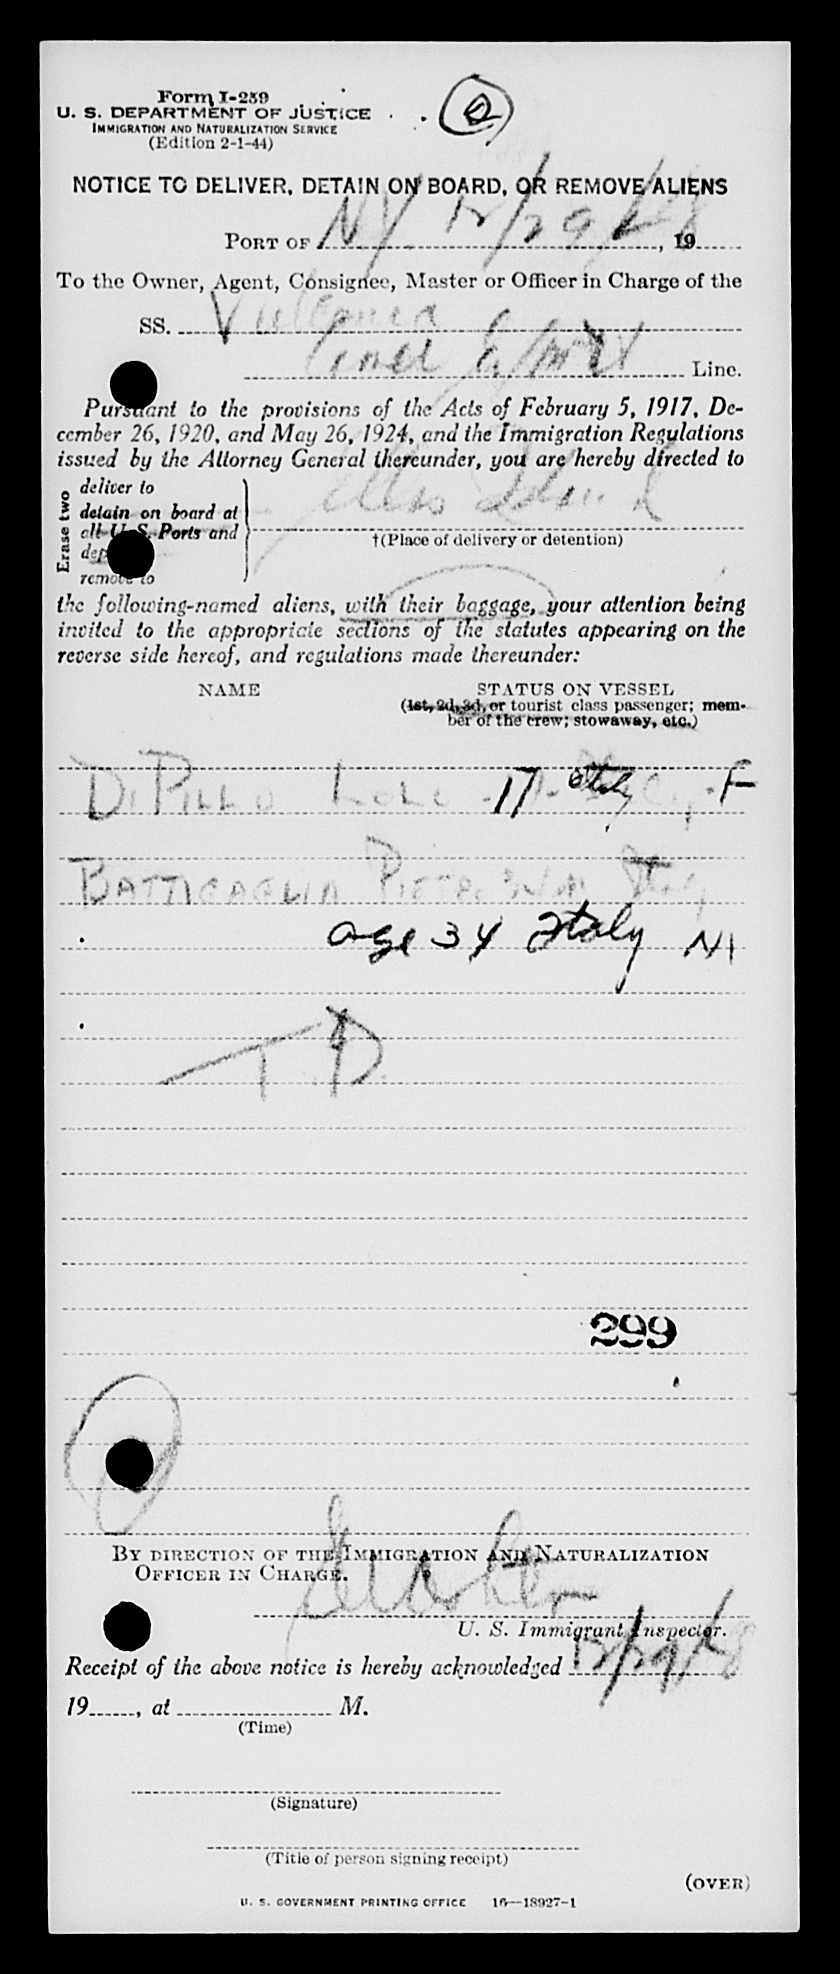 Form I-259
U. S. DEPARTMENT OF JUSTICE
IMMIGRATION AND NATURALIZATION SERVICE
(Edition 2-1-44)
NOTICE TO DELIVER, DETAIN ON BOARD, OR REMOVE ALIENS
PORT OF NY 12/29/48, 19
To the Owner, Agent, Consignee, Master or Officer in Charge of the
SS. Vulcania
Line.
Pursuant to the provisions of the Acts of February 5, 1917, De-
cember 26, 1920, and May 26, 1924, and the Immigration Regulations
issued by the Attorney General thereunder, you are hereby directed to
Erase two
deliver to
detain on board at
all U. S. Ports and
remove to
Ellis Island
†(Place of delivery or detention)
the following-named aliens, with their baggage, your attention being
invited to the appropriate sections of the statutes appearing on the
reverse side hereof, and regulations made thereunder:
NAME STATUS ON VESSEL
(1st, 2d, 3d, or tourist class passenger; mem-
ber of the crew; stowaway, etc.)
DI PILLO 17 Italy F
BATTIGAGLIA Italy
age 34 Italy
T D
299
BY DIRECTION OF THE IMMIGRATION AND NATURALIZATION
OFFICER IN CHARGE.
U. S. Immigrant Inspector.
Receipt of the above notice is hereby acknowledged 12/29/48
19, at M.
(Time)
(Signature)
(Title of person signing receipt)
(OVER)
U. S. GOVERNMENT PRINTING OFFICE 16—18927-1